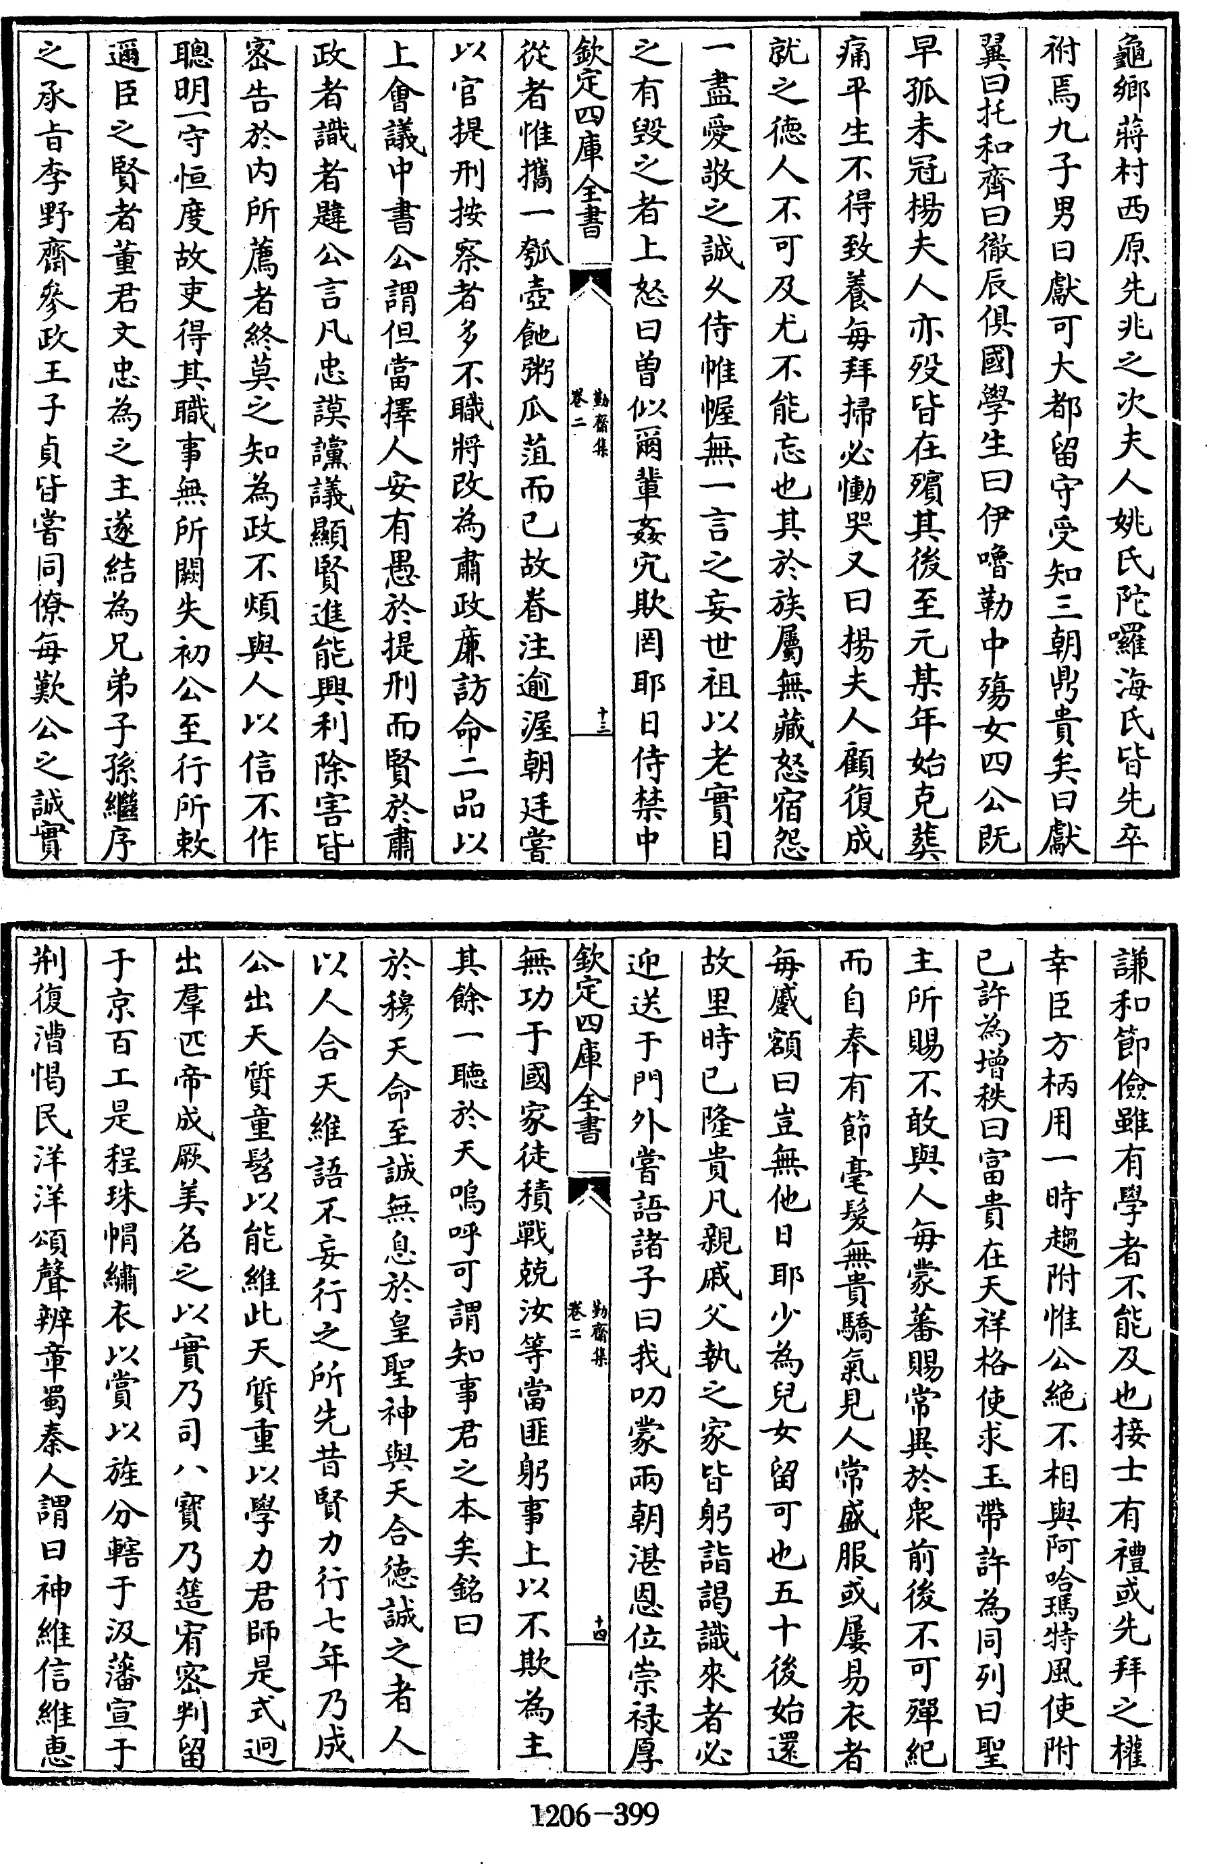 龜鄉蔣村西原先兆之次夫人姚氏陀囉海氏皆先卒
祔焉九子男曰獻可大都留守受知三朝鼎貴矣曰獻
翼曰托和齊曰徹辰俱國學生曰伊嚕勒中殤女四公既
早孤未冠楊夫人亦歿皆在殯其後至元某年始克葬
痛平生不得致養每拜掃必慟哭又曰楊夫人顧復成
就之德人不可及尤不能忘也其於族屬無藏怒宿怨
一盡愛敬之誠久侍帷幄無一言之妄世祖以老實目
之有毀之者上怒曰曾似爾輩姦宄欺罔耶日侍禁中
欽定四庫全書
勤齋集
卷二
十三
從者惟攜一瓠壺䬳粥瓜菹而已故眷注逾渥朝廷嘗
以官提刑按察者多不職將改為肅政廉訪命二品以
上會議中書公謂但當擇人安有愚於提刑而賢於肅
政者識者韙公言凡忠謨讜議顯賢進能興利除害皆
密告於內所薦者終莫之知為政不煩與人以信不作
聰明一守恒度故吏得其職事無所闕失初公至行所敕
邇臣之賢者董君文忠為之主遂結為兄弟子孫繼序
之承旨李野齋參政王子貞皆嘗同僚每歎公之誠實
謙和節儉雖有學者不能及也接士有禮或先拜之權
幸臣方柄用一時趨附惟公絕不相與阿哈瑪特風使附
已許為增秩曰富貴在天祥格使求玉帶許為同列曰聖
主所賜不敢與人每蒙蕃賜常異於衆前後不可殫紀
而自奉有節毫髮無貴驕氣見人常盛服或屢易衣者
每蹙額曰豈無他日耶少為兒女留可也五十後始還
故里時已隆貴凡親戚父執之家皆躬詣謁識來者必
迎送于門外嘗語諸子曰我叨蒙兩朝湛恩位崇祿厚
欽定四庫全書
勤齋集
卷二
十四
無功于國家徒積戰兢汝等當匪躬事上以不欺為主
其餘一聽於天嗚呼可謂知事君之本矣銘曰
於穆天命至誠無息於皇聖神與天合德誠之者人
以人合天維語不妄行之所先昔賢力行七年乃成
公出天質童髫以能維此天質重以學力君師是式迥
出羣匹帝成厥美名之以實乃司八寶乃簉宥密判留
于京百工是程珠帽繡衣以賞以旌分轄于汲藩宣于
荆復漕愒民洋洋頌聲辨章蜀秦人謂曰神維信維惠
1206-399